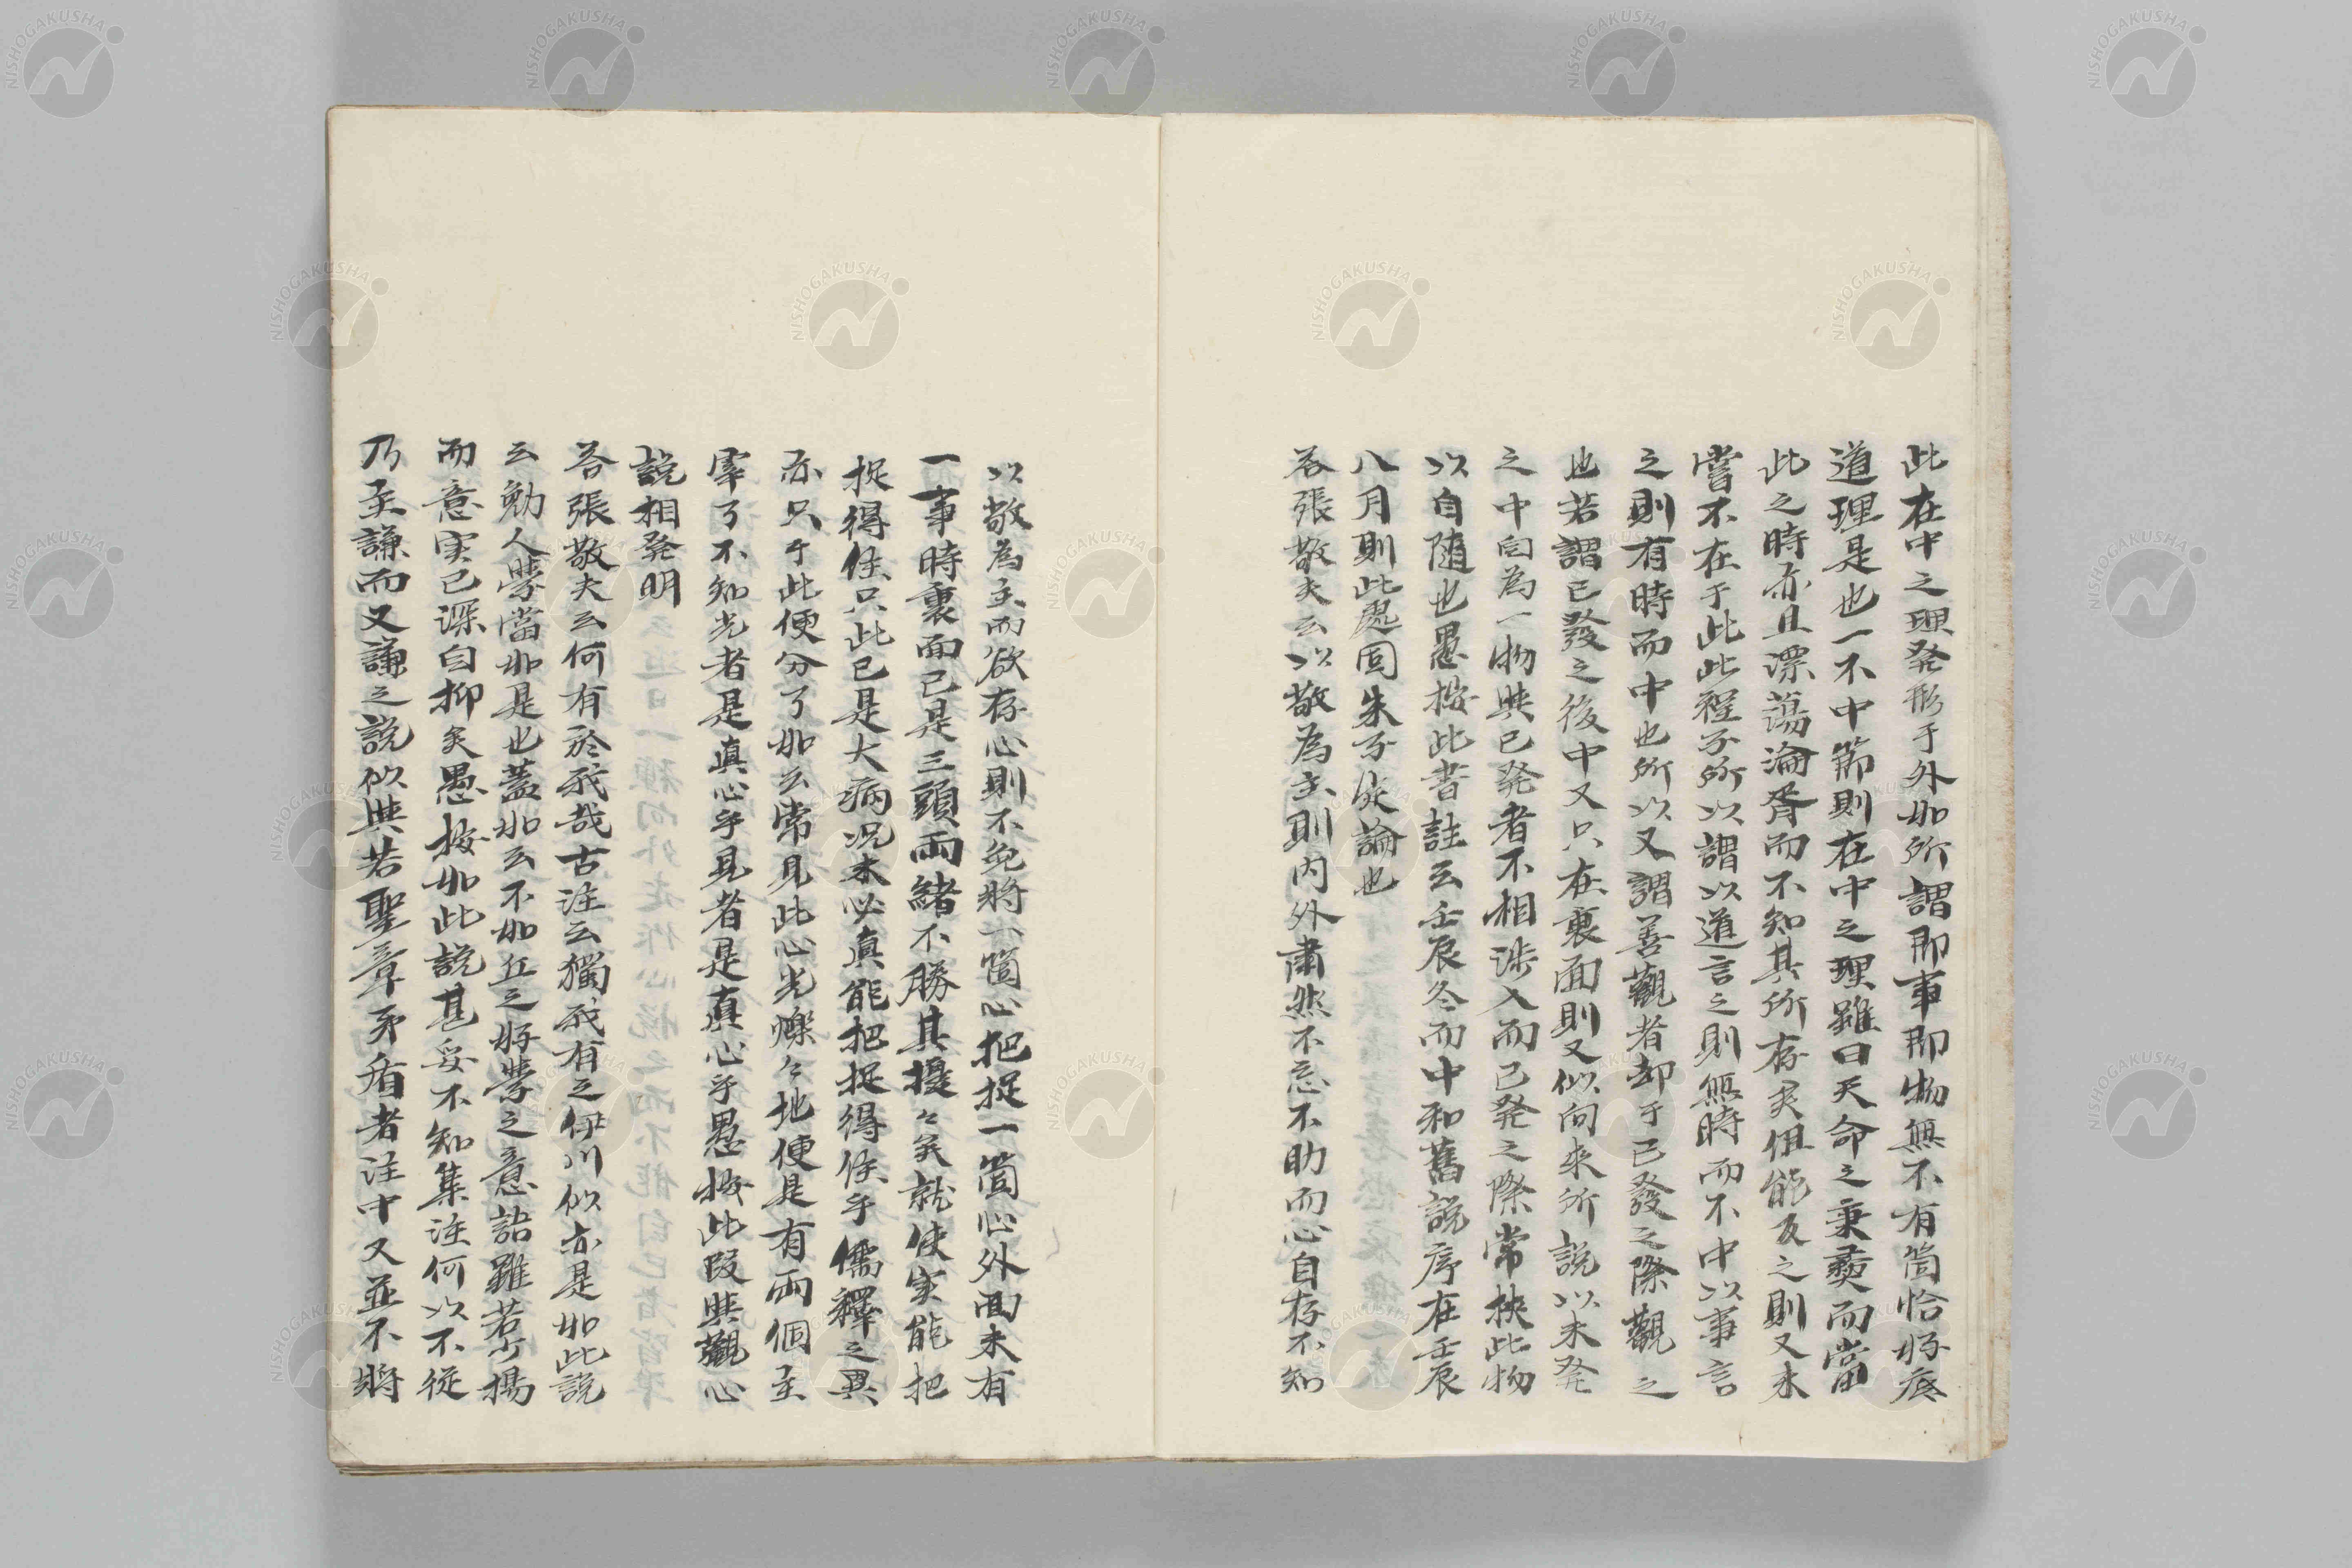 此在中之理発形于外如所謂即事即物無不有箇恰好底
道理是也一不中節則在中之理雖曰天命之秉彝而當
此之時亦且漂蕩淪胥而不知其所存矣但能反之則又未
嘗不在于此此程子所以謂以道言之則無時而不中以事言
之則有時而中也所以又謂善觀者却于已發之際觀之
也若謂已發之後中又只在裏面則又似向来所説以未発
之中自為一物與已発者不相涉入而已発之際常挾此物
以自随也愚按此書註云壬辰冬而中和舊説序在壬辰
八月則此處固朱子定論也
答張敬夫云以敬為主則内外肅然不忘不助而心自存不知
以敬為主而欲存心則不免將一箇心把捉一箇心外面未有
一事時裏面已是三頭兩緒不勝其擾々矣就使実能把
捉得住只此已是大病况未必真能把捉得住乎儒釋之異
亦只于此便分了如云常見此心光爍々地便是有兩個主
宰了不知光者是真心乎見者是真心乎愚按此段與觀心
説相発明
答張敬夫云何有於我哉古注云獨我有之伊川似亦是如此説
云勉人學當如是也蓋如云不如丘之好學之意語雖若少揚
而意実已深自抑矣愚按如此説甚妥不知集注何以不從
乃主謙而又謙之説似與若聖章矛盾者注中又並不將